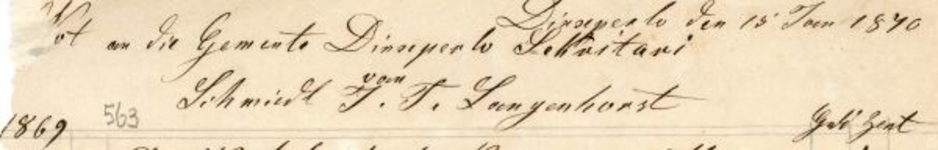 Dinxperlo den 15 Jan 1870
Not an die Gemente Dinxperlo Sekritari
van
Schmiedt J. T. Langenhorst
1869 563 Guld Zent